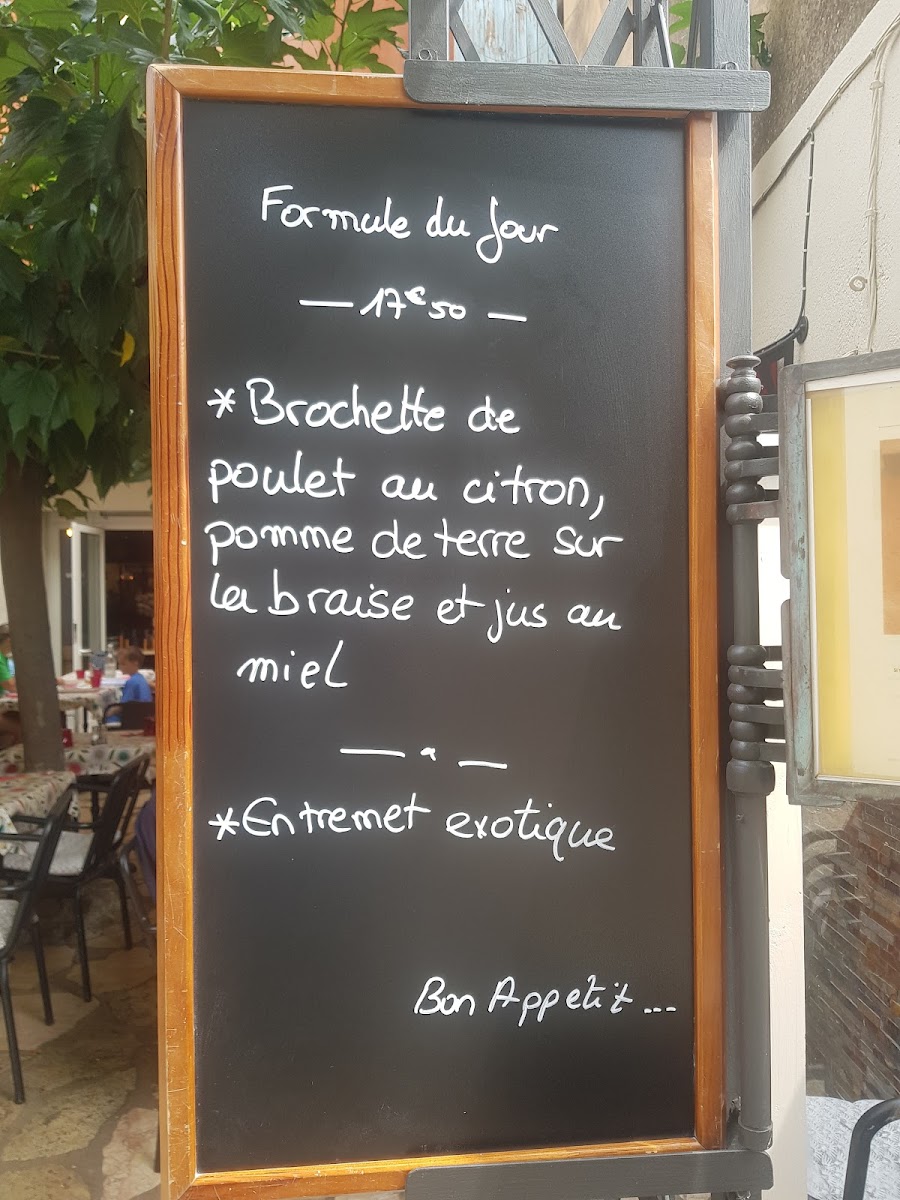 Formule du Jour
— 17€50 —
*Brochette de
poulet au citron,
pomme de terre sur
la braise et jus au
miel
*Entremet exotique
Bon Appétit...